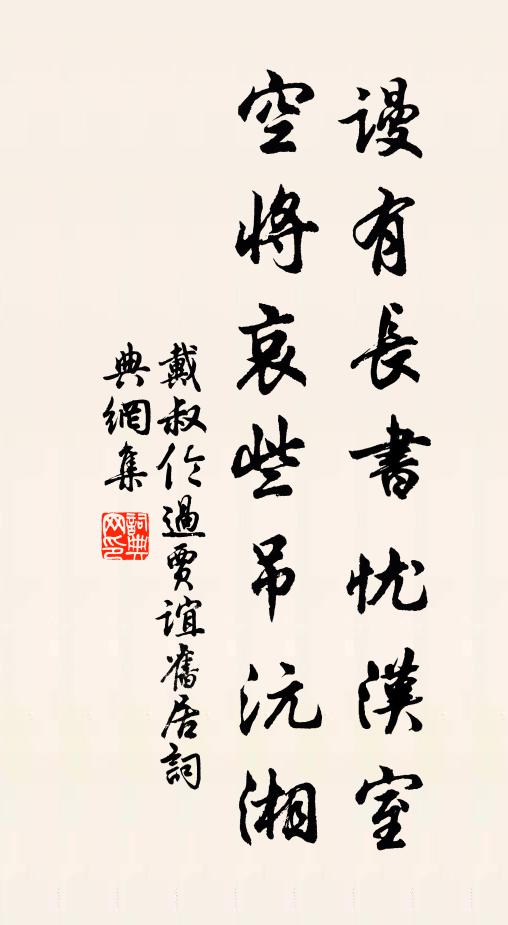 謾有長書忧漢室
空將哀些吊沅湘
戴叔伦過賈誼舊居詞
典網集
詞典網印